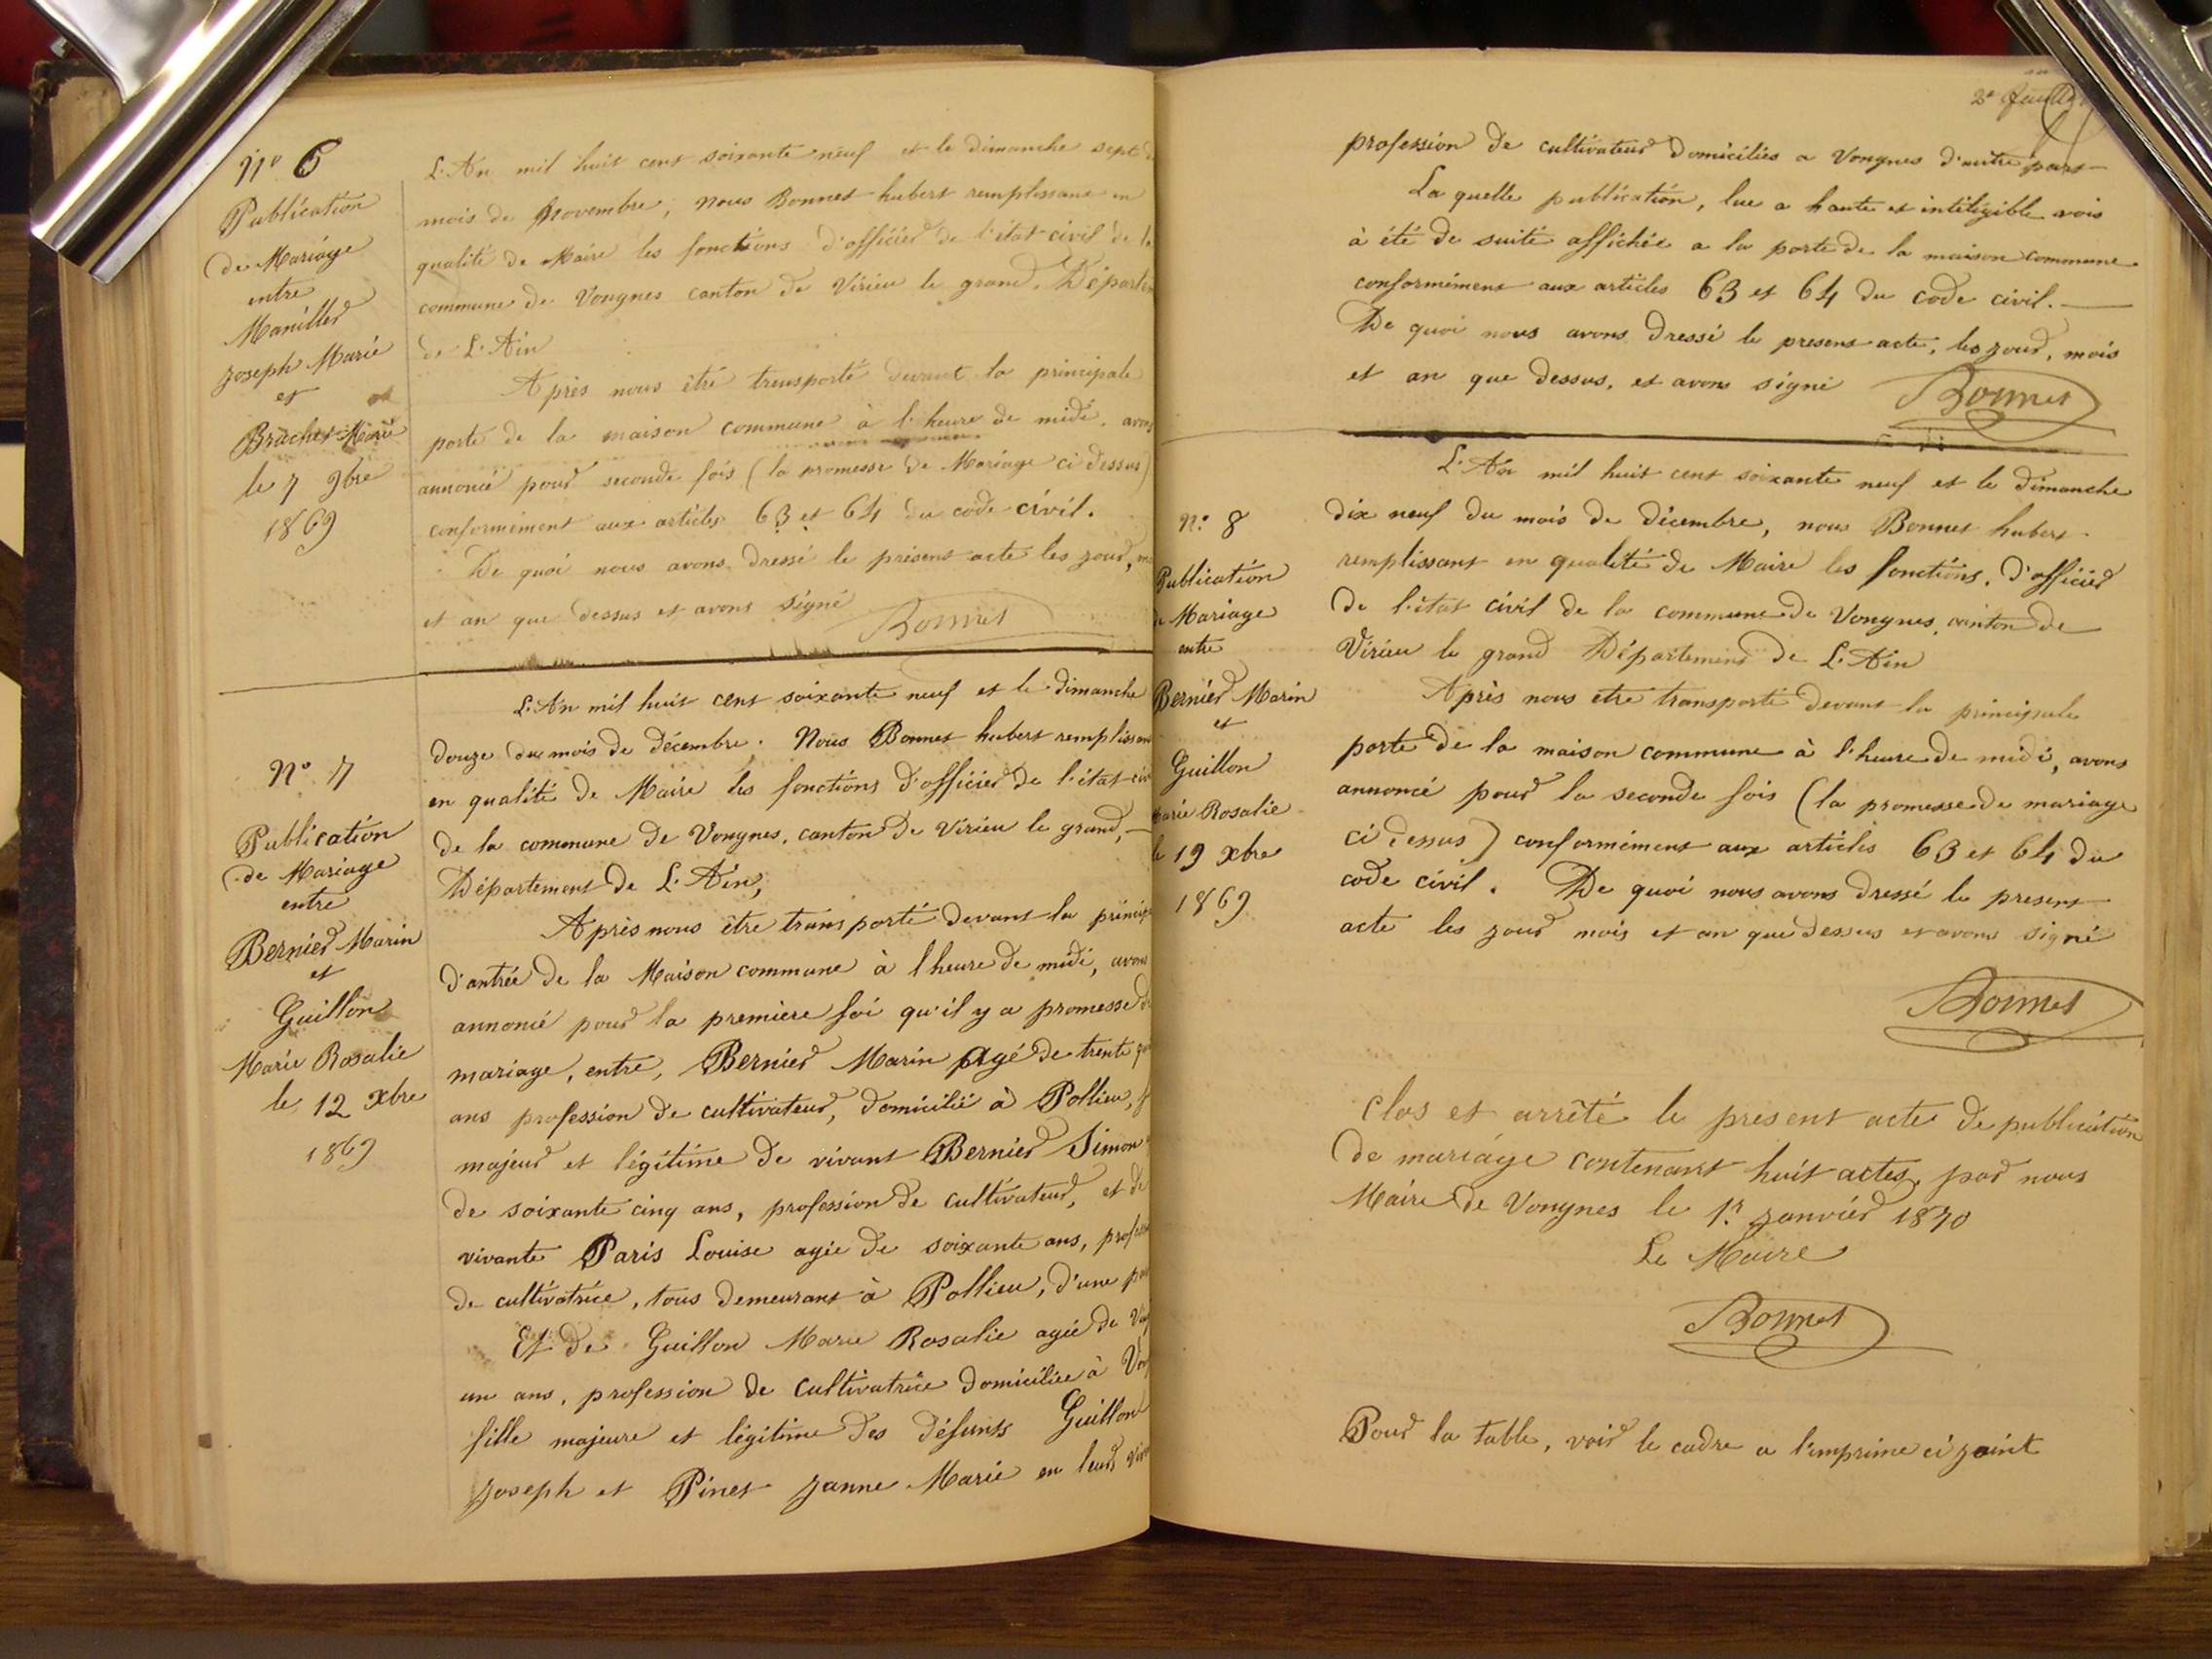 N° 6
Publication
de Mariage
entre
Maniller
Joseph Marie
et
Brachet Marie
le 7 9bre
1869
L'An mil huit cent soixante neuf et le dimanche sept d
mois de Novembre, nous Bonnet hubert remplissant en
qualité de Maire les fonctions d'officier de l'état civil de la
commune de Vongnes canton de Virieu le grand, Départem
de L'Ain
Après nous être transporté devant la principale
porte de la maison commune à l'heure de midi, avons
annoncé pour seconde fois (la promesse de Mariage ci dessus)
conformément aux articles 63 et 64 du code civil.
De quoi nous avons dressé le présent acte les jour, m
et an que dessus et avons signé
Bonnet
N° 7
Publication
de Mariage
entre
Bernier Marin
et
Guillon
Marie Rosalie
le 12 xbre
1869
L'An mil huit cent soixante neuf et le dimanche
douze du mois de décembre. Nous Bonnet hubert remplissant
en qualité de Maire les fonctions d'officier de l'état civ
de la commune de Vongnes, canton de Virieu le grand,
Département de L'Ain,
Après nous être transporté devant la princip
d'antrée de la Maison commune à l'heure de midi, avons
annoncé pour la première foi qu'il y a promesse de
mariage, entre, Bernier Marin agé de trente
ans profession de cultivateur, domicilié à Pollieu, f
majeur et légitime de vivant Bernier Simon
de soixante cinq ans, profession de cultivateur, et de
vivante Paris Louise agée de soixante ans, profess
de cultivatrice, tous demeurant à Pollieu, d'une part
Et de Guillon Marie Rosalie agée de Ving
un ans, profession de cultivatrice domiciliée à Von
fille majeure et légitime des défunts Guillon
Joseph et Pinet Janne Marie en leur viv
2e feuillet
profession de cultivateur domiciliés a Vongnes d'autre part
La quelle publication, lue a haute et inteligible voix
à été de suite affichée a la porte de la maison commune
conformément aux articles 63 et 64 du code civil.
De quoi nous avons dressé le present acte, les jour, mois
et an que dessus, et avons signé
Bonnet
N° 8
Publication
de Mariage
entre
Bernier Marin
et
Guillon
Marie Rosalie
le 19 xbre
1869
L'An mil huit cent soixante neuf et le dimanche
dix neuf du mois de décembre, nous Bonnet hubert
remplissant en qualité de Maire les fonctions, d'officier
de l'état civil de la commune de Vongnes, canton de
Virieu le grand Département de L'Ain
Après nous etre transporté devant la principale
porte de la maison commune à l'heure de midi, avons
annoncé pour la seconde fois (la promesse de mariage
ci dessus) conformément aux articles 63 et 64 du
code civil. De quoi nous avons dressé le present
acte les jour mois et an que dessus et avons signé
Bonnet
Clos et arrêté le present acte de publication
de mariage contenant huit actes, par nous
Maire de Vongnes le 1r janvier 1870
Le Maire
Bonnet
Pour la table, voir le cadre a l'imprime ci joint